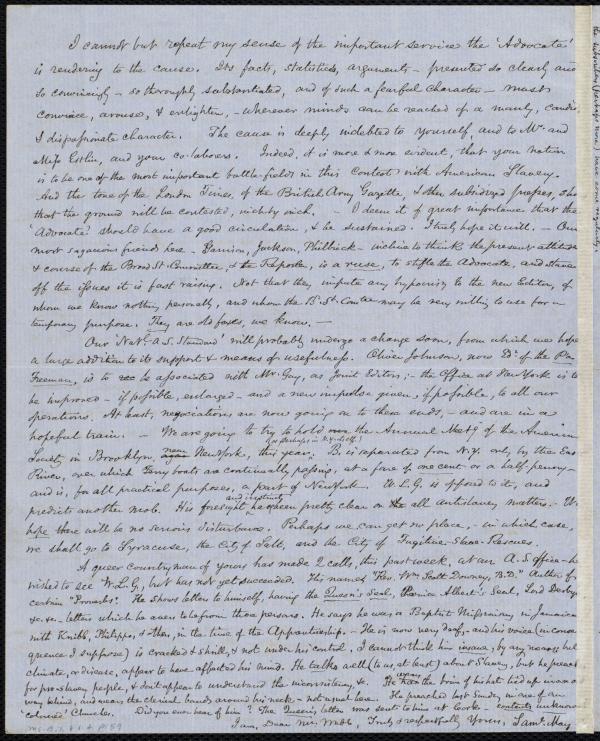 I cannot but repeat my sense of the important service the 'Advocate'
is rendering to the cause. Its facts, statistics, arguments - presented so clearly and
so convincingly - so thoroughly substantiated, and of such a fearful character - must
convince, arouse, & enlighten, - wherever minds can be reached of a manly, candid
& dispassionate character. The cause is deeply indebted to yourself, and to Mr. and
Miss Estlin, and your co-laborers. Indeed, it is more & more evident, that your nation
is to be one of the most important battle-fields in this Contest with American Slavery.
And the tone of the London Times, of the British Army Gazette, & other subsidized presses, show
that the ground will be contested, inch by inch. - I deem it of great importance that the
'Advocate' should have a good circulation, & be sustained. I truly hope it will. - Our
most sagacious friends here - Garrison, Jackson, Philbrick - incline to think the present attitude
& course of the Broad St. Committee, & the Reporter, is a ruse, to stifle the Advocate, and stave
off the issues it is fast raising. Not that they impute any hypocrisy to the new Editor, of
whom we know nothing personally, and whom the B. St. Comtee may be very willing to use for a
temporary purpose. They are old foxes, we know. -
Our 'Natl. A. S. Standard' will probably undergo a change soon, from which we hope
a large addition to its support & means of usefulness. Oliver Johnson, now Ed. of the Pa.
Freeman, is to be associated with Mr. Gay, as Joint Editors; - the Office at New York is to
be improved - if possible, enlarged - and a new impulse given, if possible, to all our
operations. At least, negociations are now going on to these ends, - and are in a
hopeful train. - We are going to try to hold the Annual Meetg. of the American
(or perhaps in N.Y. itself)
Society in Brooklyn, near New York, this year; B. is separated from N.Y. only by the East
River, over which Ferry boats are continually passing, at a fare of one cent or a half-penny -
and is, for all practical purposes, a part of New York. W.L.G. is opposed to it, and
predicts another mob. His foresight has been pretty clear on all antislavery matters. - We
hope there will be no serious disturbance. Perhaps we can get no place, - in which case,
we shall go to Syracuse, the City of Salt, and the City of Fugitive-Slave-Rescues.
A queer countryman of yours has made 2 calls, this past week, at our A. S. Office - he
wished to see W.L.G., but has not yet succeeded. This named "Rev. Wm. Scott Downey, B.D." Author of
certain "Proverbs". He shows letters to himself, having the Queen's Seal, Prince Albert's Seal, Lord Derby's
&c. &c. - letters which he avers to be from those persons. He says he was a Baptist Missionary in Jamaica
with Knibb, Philippo, & others, in the time of the Apprenticeship. - He is now very deaf, - and his voice (in conse-
quence I suppose) is cracked & shrill, & not under his control. I cannot think him insane, by any means, but
climate, or disease, appear to have affected his mind. He talks well (to us, at least) about Slavery, but he preaches
for pro-slavery people, & don't appear to understand the inconsistency, &c. He wears the brim of his hat tied up in an odd
way behind, and wears the clerical bands around his neck - not usual here. He preached last Sunday in one of our
'colored' Churches. Did you ever hear of him? The Queen's letter was sent to him at Cork - contents unknown
I am, Dear Mrs. Webb, Truly & respectfully Yours, Saml. May